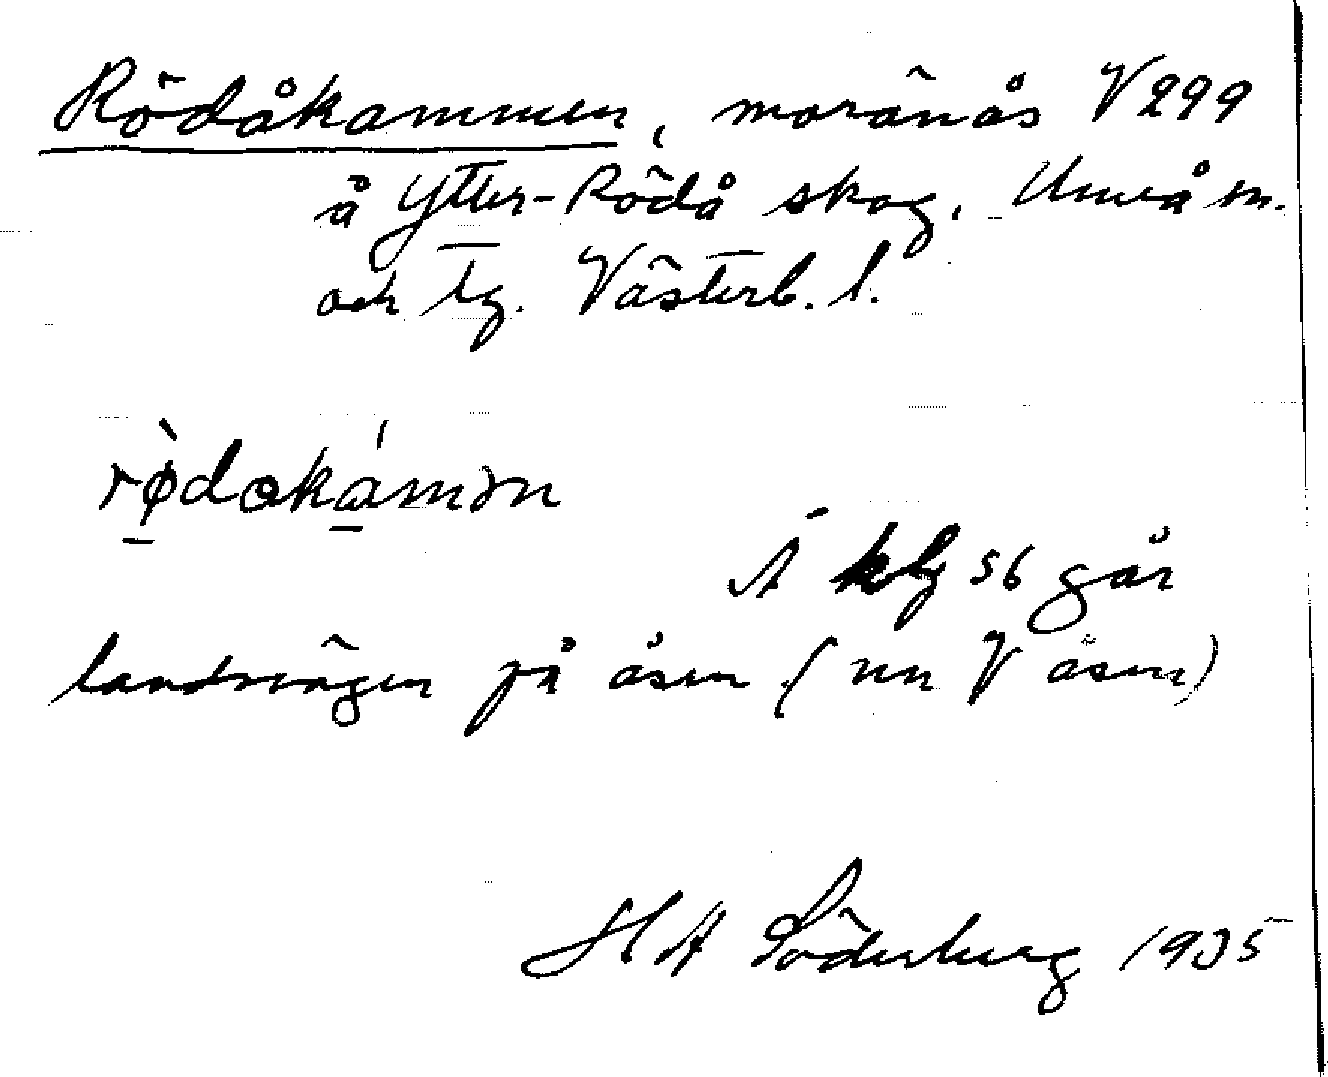 Rödåkammen, moränås V299
å Ytter-Rödå skog, Umeå sn.
och tg. Västerb. l.
rø̀dakámən
Å kbl 56 går
landsvägen på åsen (um V åsen)
H A Söderberg 1935